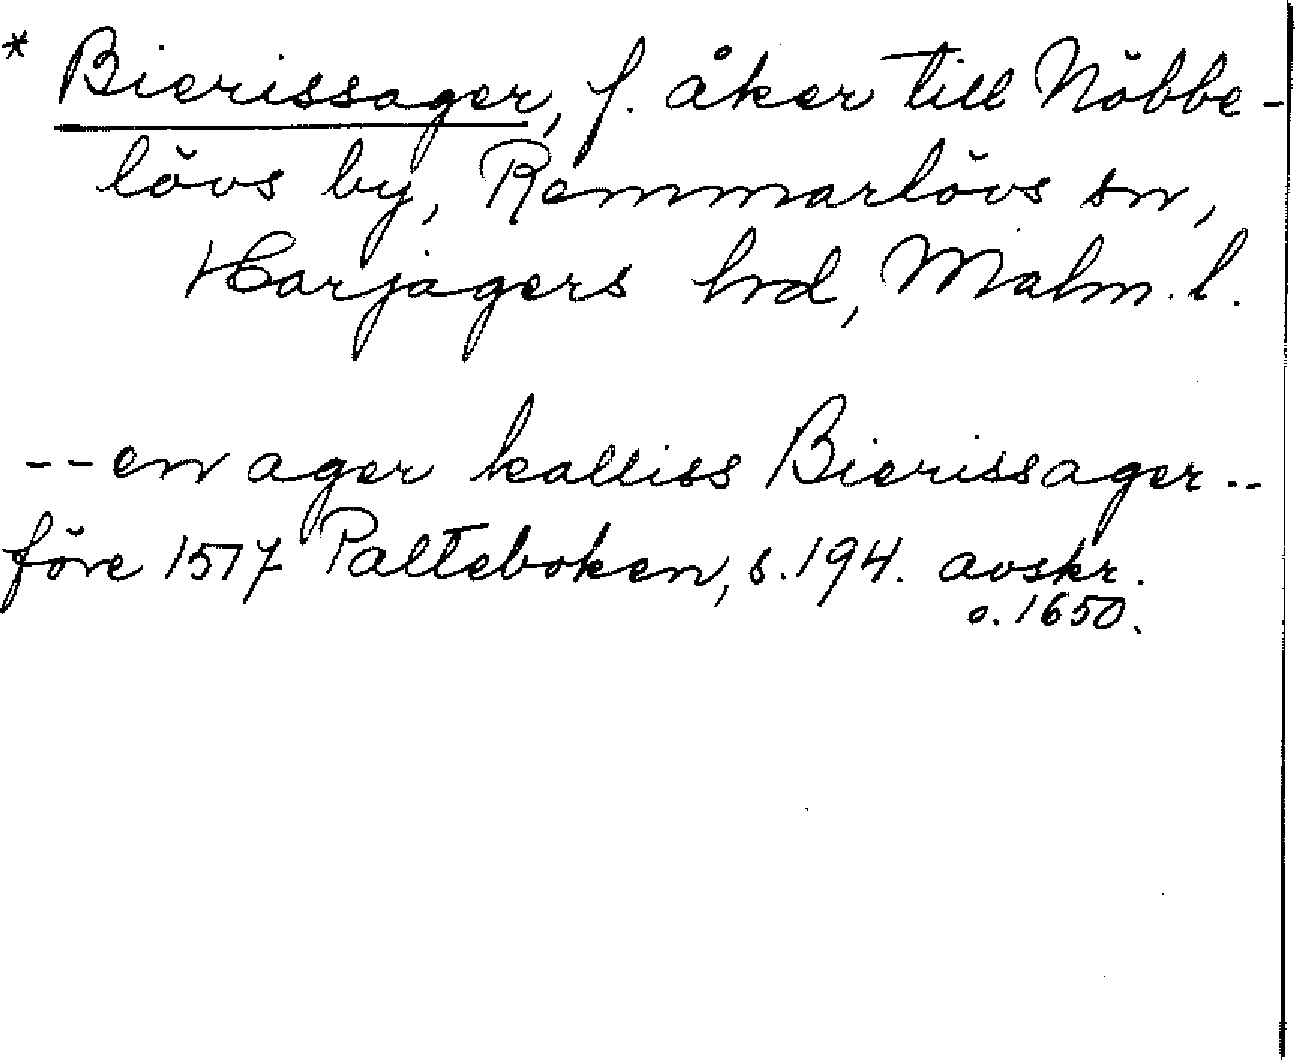 * Bierissager, f. åker till Nöbbe-
lövs by, Remmarlövs sn,
Harjagers hrd, Malm. l.
-- en ager kalliss Bierissager --
före 1517 Palteboken, s. 194. avskr.
o. 1650.